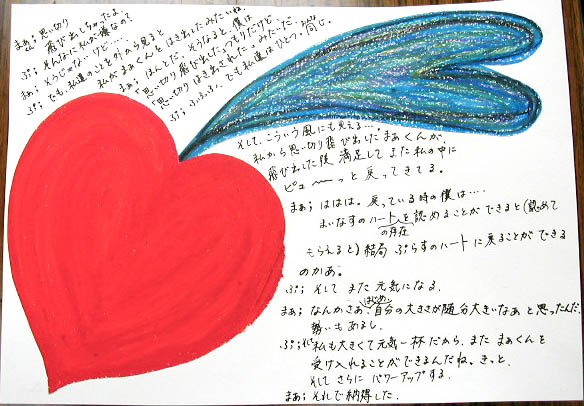 まぁ；思い切り
飛び出しちゃったよ。
ぷ；そんなに私が嫌なので
まぁ；そうじゃないけど…
ぷ；でも、私達のことを外から見ると
私がまぁくんをはき出したみたいね。
まぁ；ほんとだ。そうなると僕は
「思い切り飛び出した」つもりだけど
「思い切りはき出された」みたいだ…
ぷ；ふふふ、でも私達はひとつ。同じ。
そして、こういう風にも見える…
私から思い切り飛び出したまぁくんが、
飛び出した後、満足してまた私の中に
ピューーっと戻ってきてる。
まぁ；ははは。戻っている時の僕は…
まいなすのハートを認めることができると(認めて
の存在
もらえると)結局ぷらすのハートに戻ることができる
のかあ。
ぷ；そしてまた元気になる。
はじめ
まぁ；なんかさあ、自分の大きさが随分大きいなぁと思ったんだ。
勢いもあるし。
ぷ；それ私も大きくて元気一杯だから、またまぁくんを
受け入れることができるんだね。きっと。
そしてさらにパワーアップする。
まぁ；それで納得した。